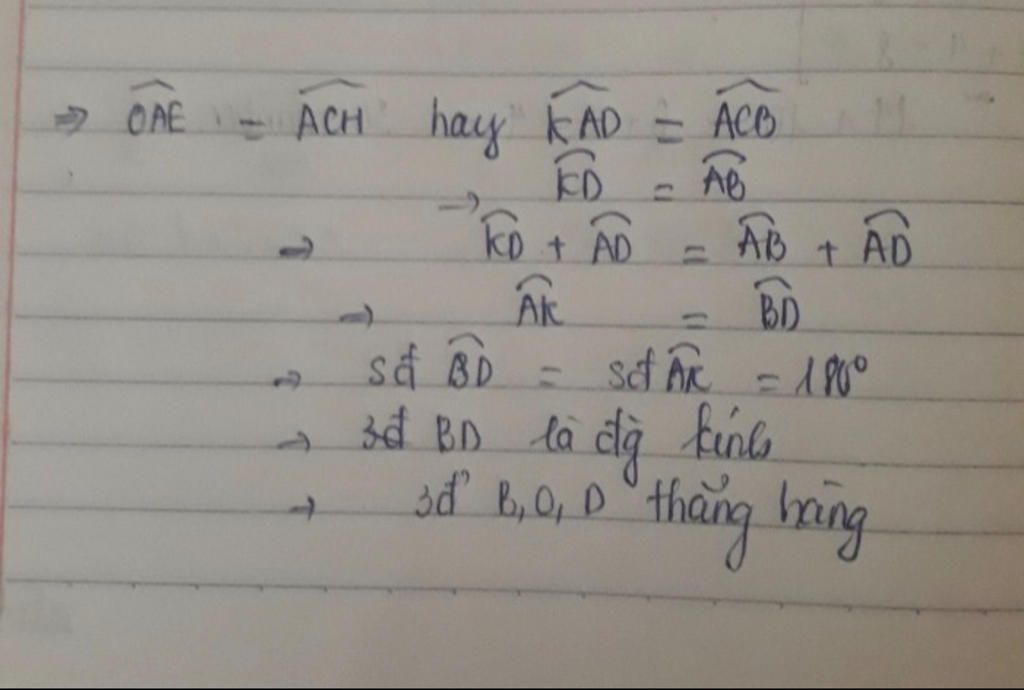 ⇒ OAE = ACH hay KAD = ACB
→ KD = AB
⇒ KD + AD = AB + AD
⇒ AK = BD
→ sđ BD = sđ AK = 180°
→ 3đ BD là đg kính
→ 3đ' B, O, D thẳng hàng